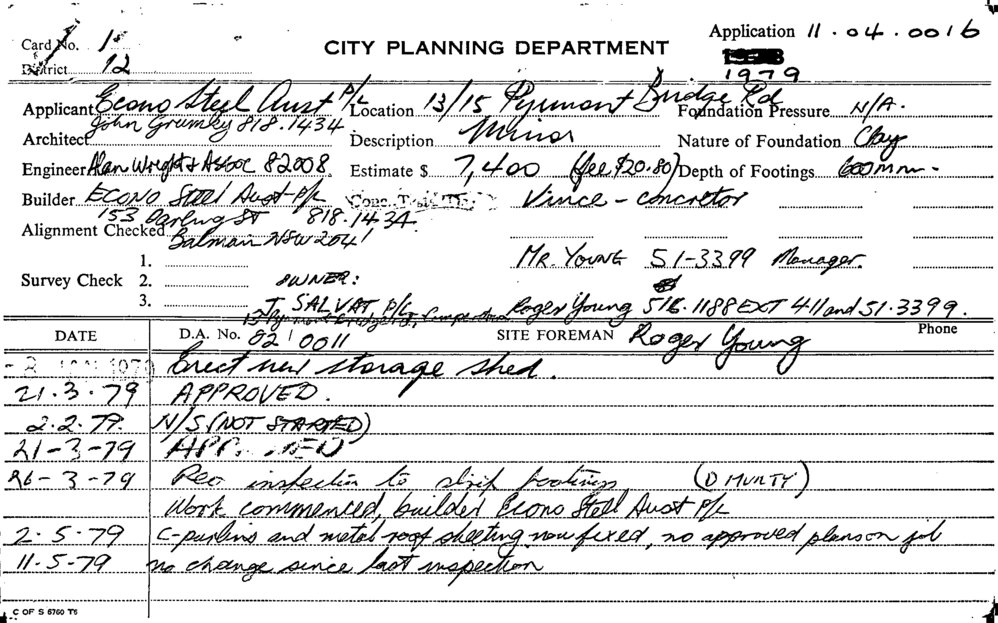 Card No. 1
CITY PLANNING DEPARTMENT
Application 11.04.0016
District 12
1979
Applicant Econo Steel Aust P/L Location 13/15 Pyrmont Bridge Rd Foundation Pressure N/A.
Architect John Grumley 818.1434 Description Minor Nature of Foundation Clay
Engineer Alan Wright & Assoc 82008. Estimate $ 7,400 (fee $20.80) Depth of Footings 600mm.
Builder ECONO Steel Aust P/L Vince - concretor
153 Darling St 818.1434
Alignment Checked Balmain NSW 2041
1. MR. YOUNG 51-3399 Manager.
Survey Check 2. OWNER:
3. J. SALVAT, P/L Roger Young 516.1188 EXT 411 and 51.3399.
DATE D.A. No. 82/0011 SITE FOREMAN Roger Young Phone
1979 Erect new storage shed.
21.3.79 APPROVED.
2.2.79. N/S (NOT STARTED)
21-3-79
26-3-79 Reo inspection to strip footings (D MURTY)
Work commenced, builder Econo Steel Aust P/L
2.5.79 C-purlins and metal roof sheeting now fixed, no approved plans on job
11.5.79 no change since last inspection
C OF S 6760 T6